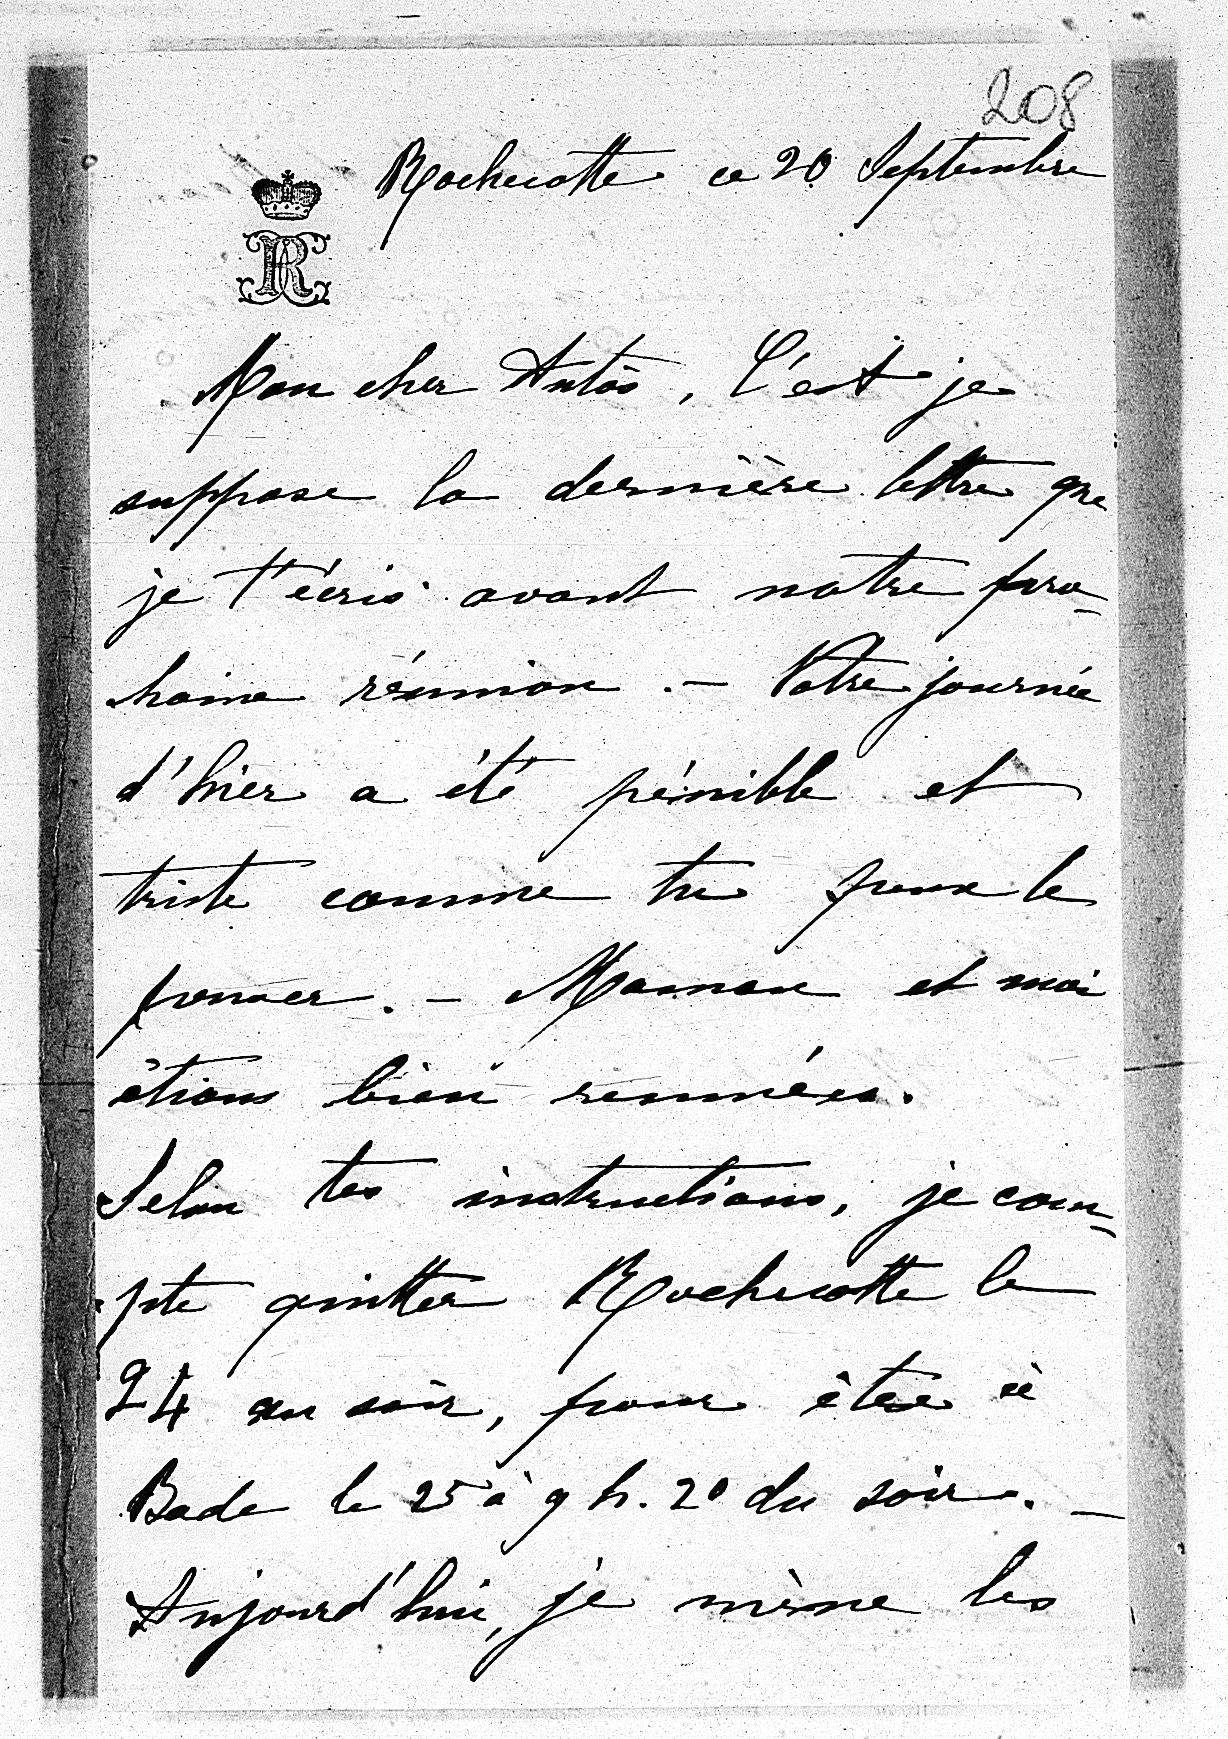 208
Rochecotte ce 20 Septembre
R
Mon cher Antòs, C'est je
suppose la dernière lettre que
je t'écris avant notre pro-
haine réunion. – Votre journée
d'hier a été pénible et
triste comme tu peux le
penser. – Maman et moi
étions bien remuées.
Selon tes instructions, je com-
pte quitter Rochecotte le
24 au soir, pour être à
Bade le 25 à 9 h. 20 du soir. –
Aujourd'hui, je mène les